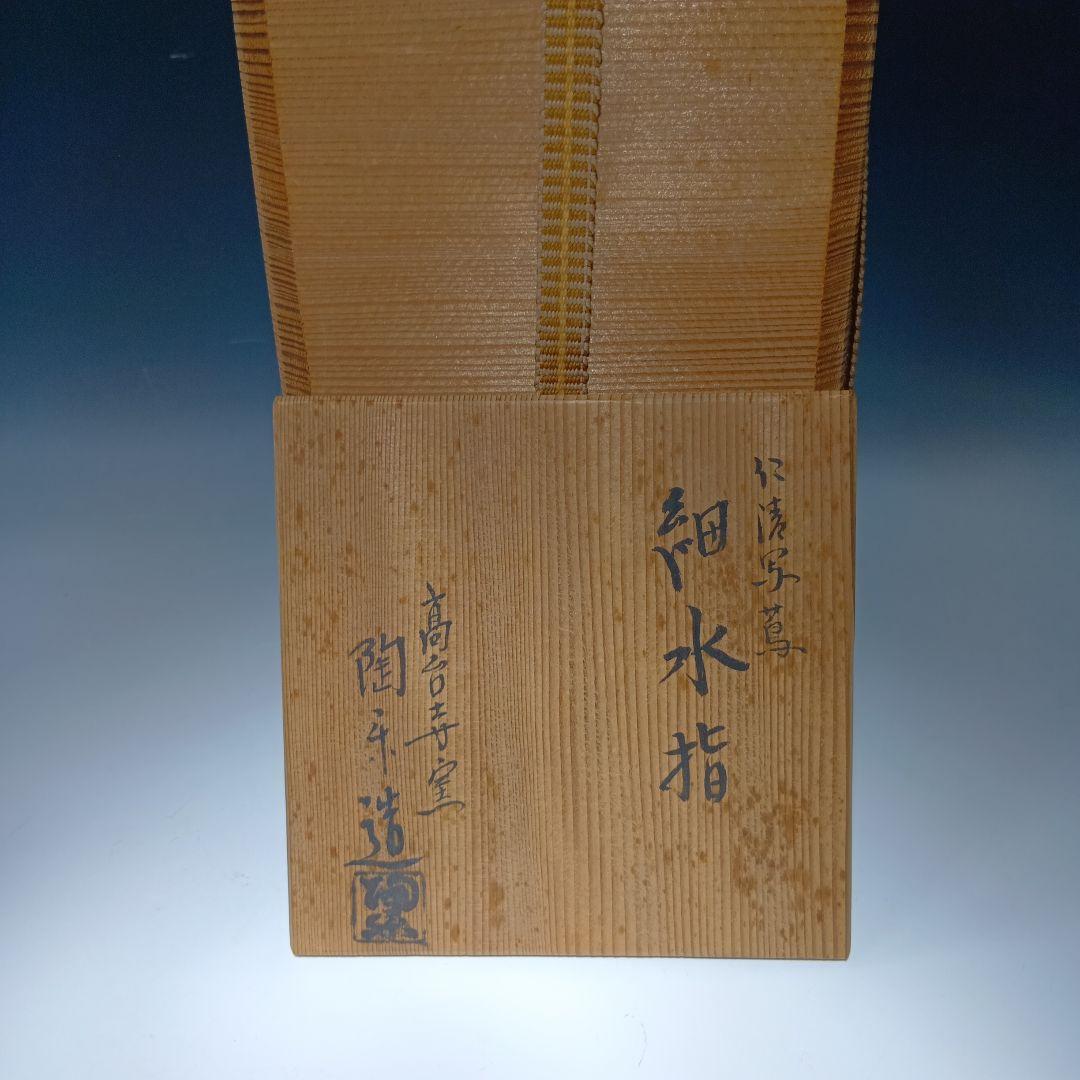 仁清写蔦
細水指
高台寺窯
陶楽造